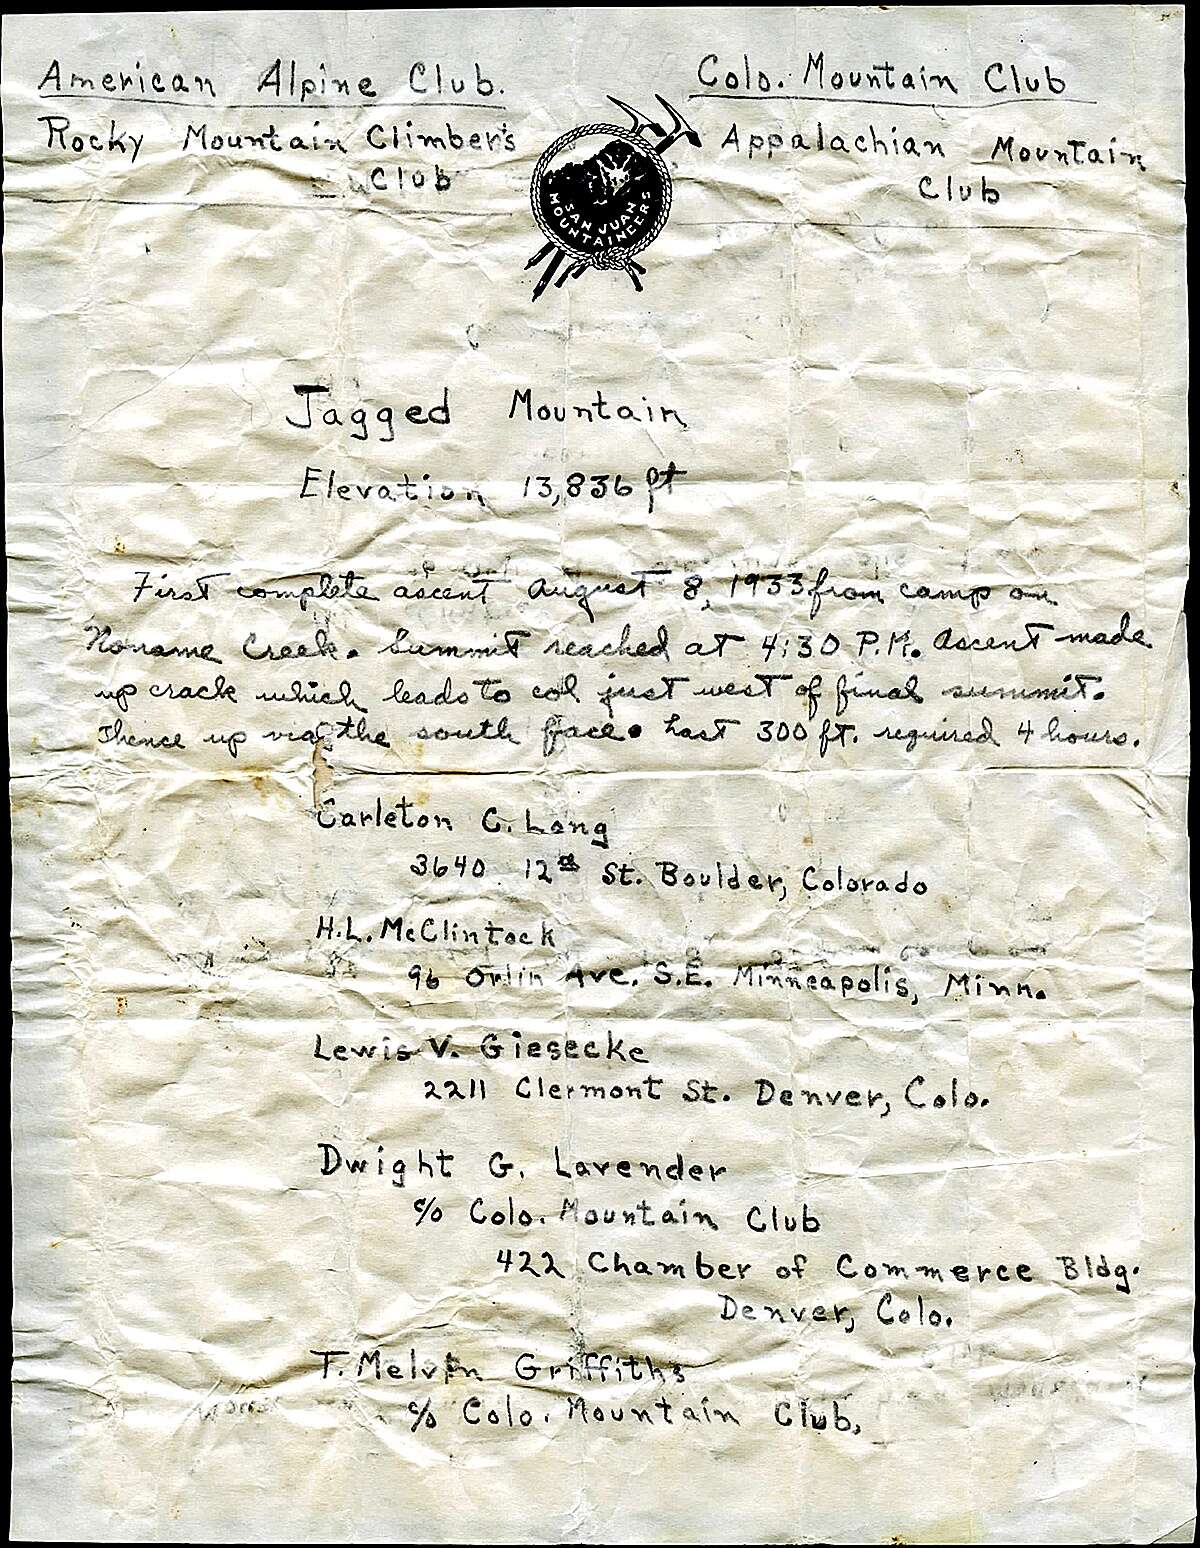 American Alpine Club.
Rocky Mountain Climber's
Club
Colo. Mountain Club
Appalachian Mountain
Club
SAN JUAN
MOUNTAINEERS
Jagged Mountain
Elevation 13,836 ft
First complete ascent August 8, 1933 from camp on
Noname Creek. Summit reached at 4:30 P.M. Ascent made
up crack which leads to col just west of final summit.
Thence up via the south face. Last 300 ft. required 4 hours.
Carleton C. Long
3640 12th St. Boulder, Colorado
H.L. McClintock
96 Orlin Ave. S.E. Minneapolis, Minn.
Lewis V. Giesecke
2211 Clermont St. Denver, Colo.
Dwight G. Lavender
c/o Colo. Mountain Club
422 Chamber of Commerce Bldg.
Denver, Colo.
T. Melvin Griffiths
c/o Colo. Mountain Club.